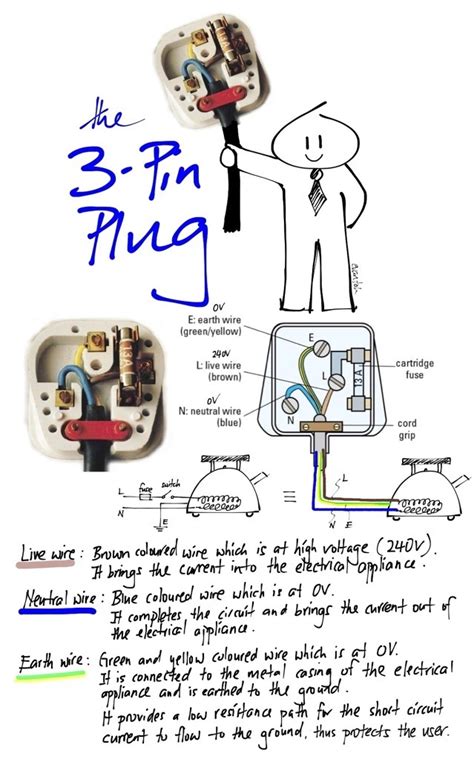 the
3-Pin
Plug
evantoh
0V
E: earth wire
(green/yellow)
240V
L: live wire
(brown)
0V
N: neutral wire
(blue)
E
L
N
13A
cartridge
fuse
cord
grip
L
fuse
switch
N
E
≡
L
N
E
Live wire: Brown coloured wire which is at high voltage (240V).
It brings the current into the electrical appliance.
Neutral wire: Blue coloured wire which is at 0V.
It completes the circuit and brings the current out of
the electrical appliance.
Earth wire: Green and yellow coloured wire which is at 0V.
It is connected to the metal casing of the electrical
appliance and is earthed to the ground.
It provides a low resistance path for the short circuit
current to flow to the ground, thus protects the user.